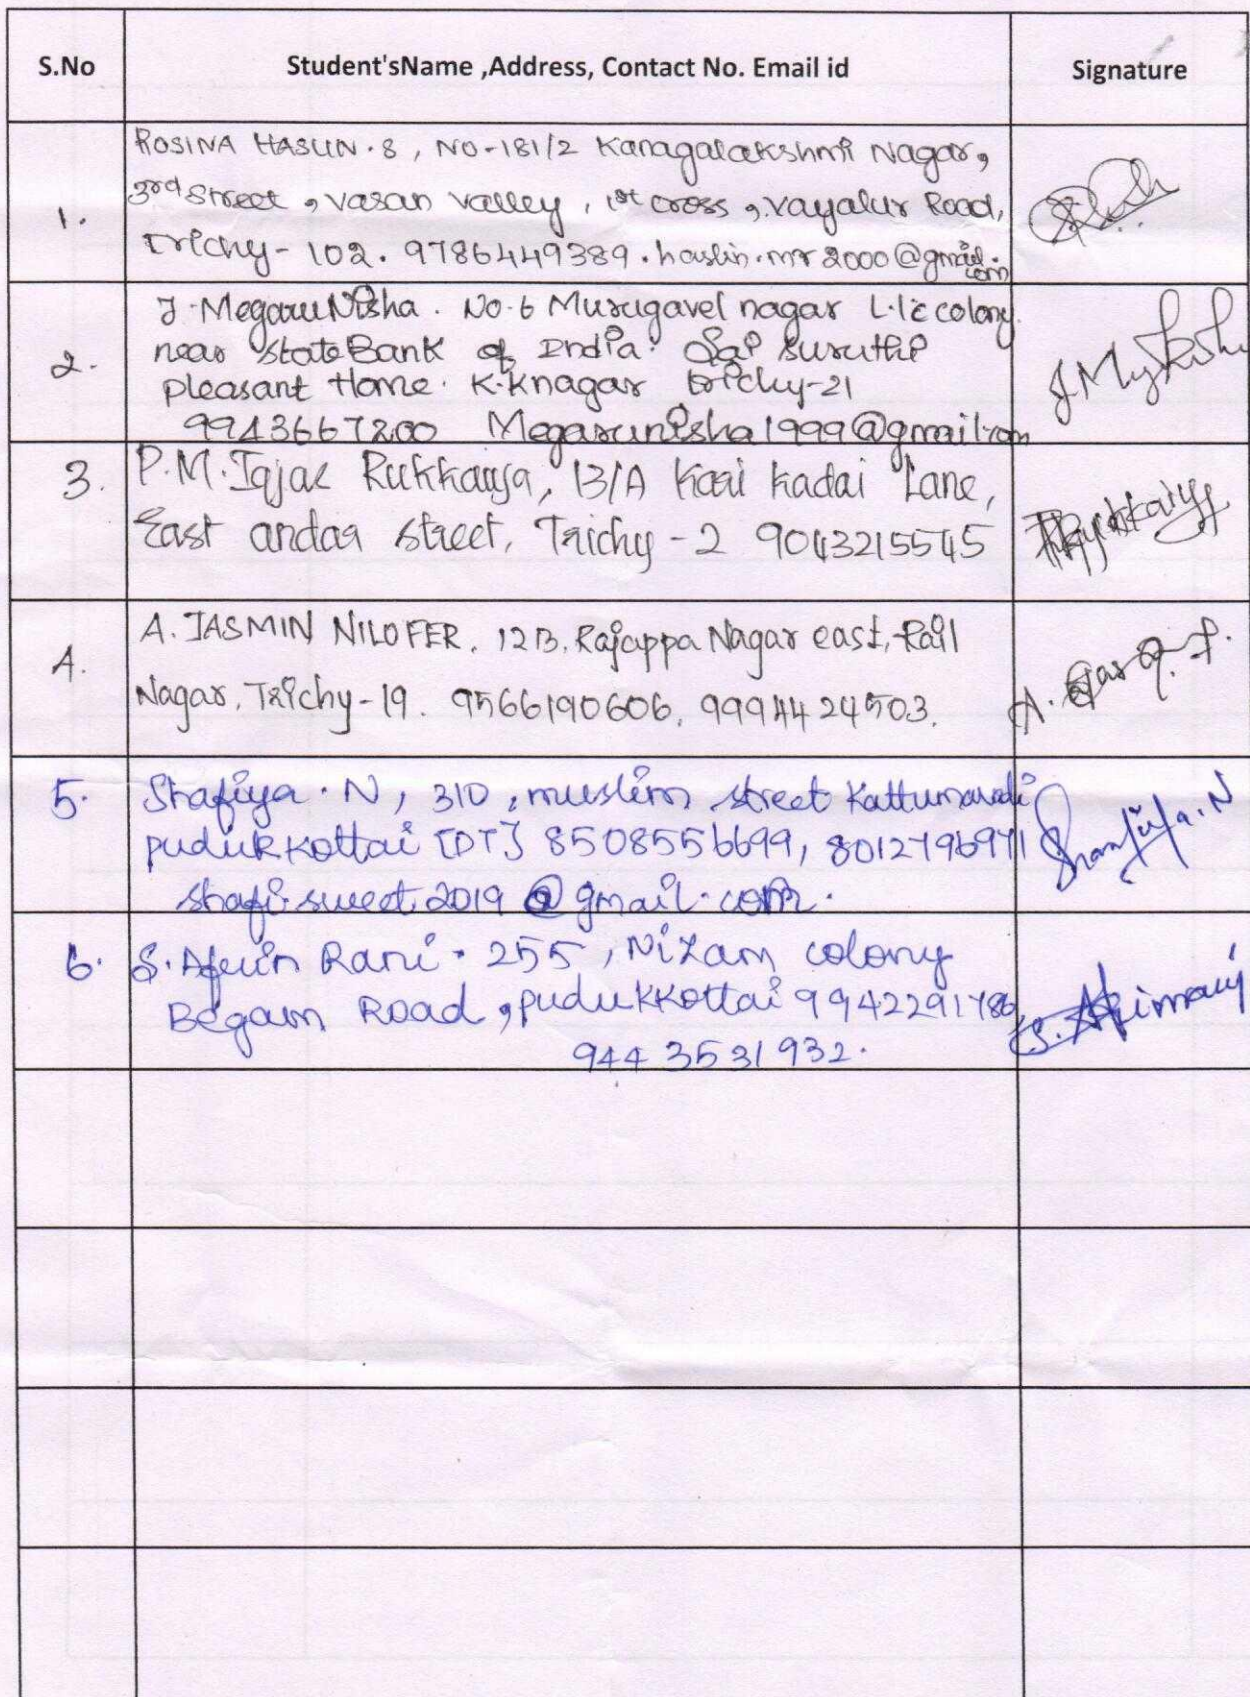 S.No Student'sName ,Address, Contact No. Email id Signature
ROSINA HASLIN.S, NO-181/2 Kanagalakshmi Nagar,
1. 3rd Street, vasan valley, 1st cross, vayalur Road,
Trichy-102. 9786449389. haslin.mr2000@gmail.com
J. MegaruNisha. No.6 Murugavel nagar L.I.C colony.
2. near State Bank of India. Sai Suruthi
pleasant Home. K.Knagar trichy-21
9943667200 Megarunisha1999@gmail.com
3. P.M. Iqjac Rukkaiya, 13/A Kari kadai Lane,
East andar street, Trichy-2 9043215545
A. JASMIN NILOFER. 12B. Rajappa Nagar east, Rail
4. Nagar, Trichy-19. 9566190606, 9994424503.
5. Shafiya.N, 310, muslim street Kattumavadi
pudukkottai [DT] 8508556699, 8012796971
shafi.sweet2019@gmail.com.
6. S. Afrin Rani. 255, Nizam colony
Begam Road, pudukkottai 9942291786
9443531932.